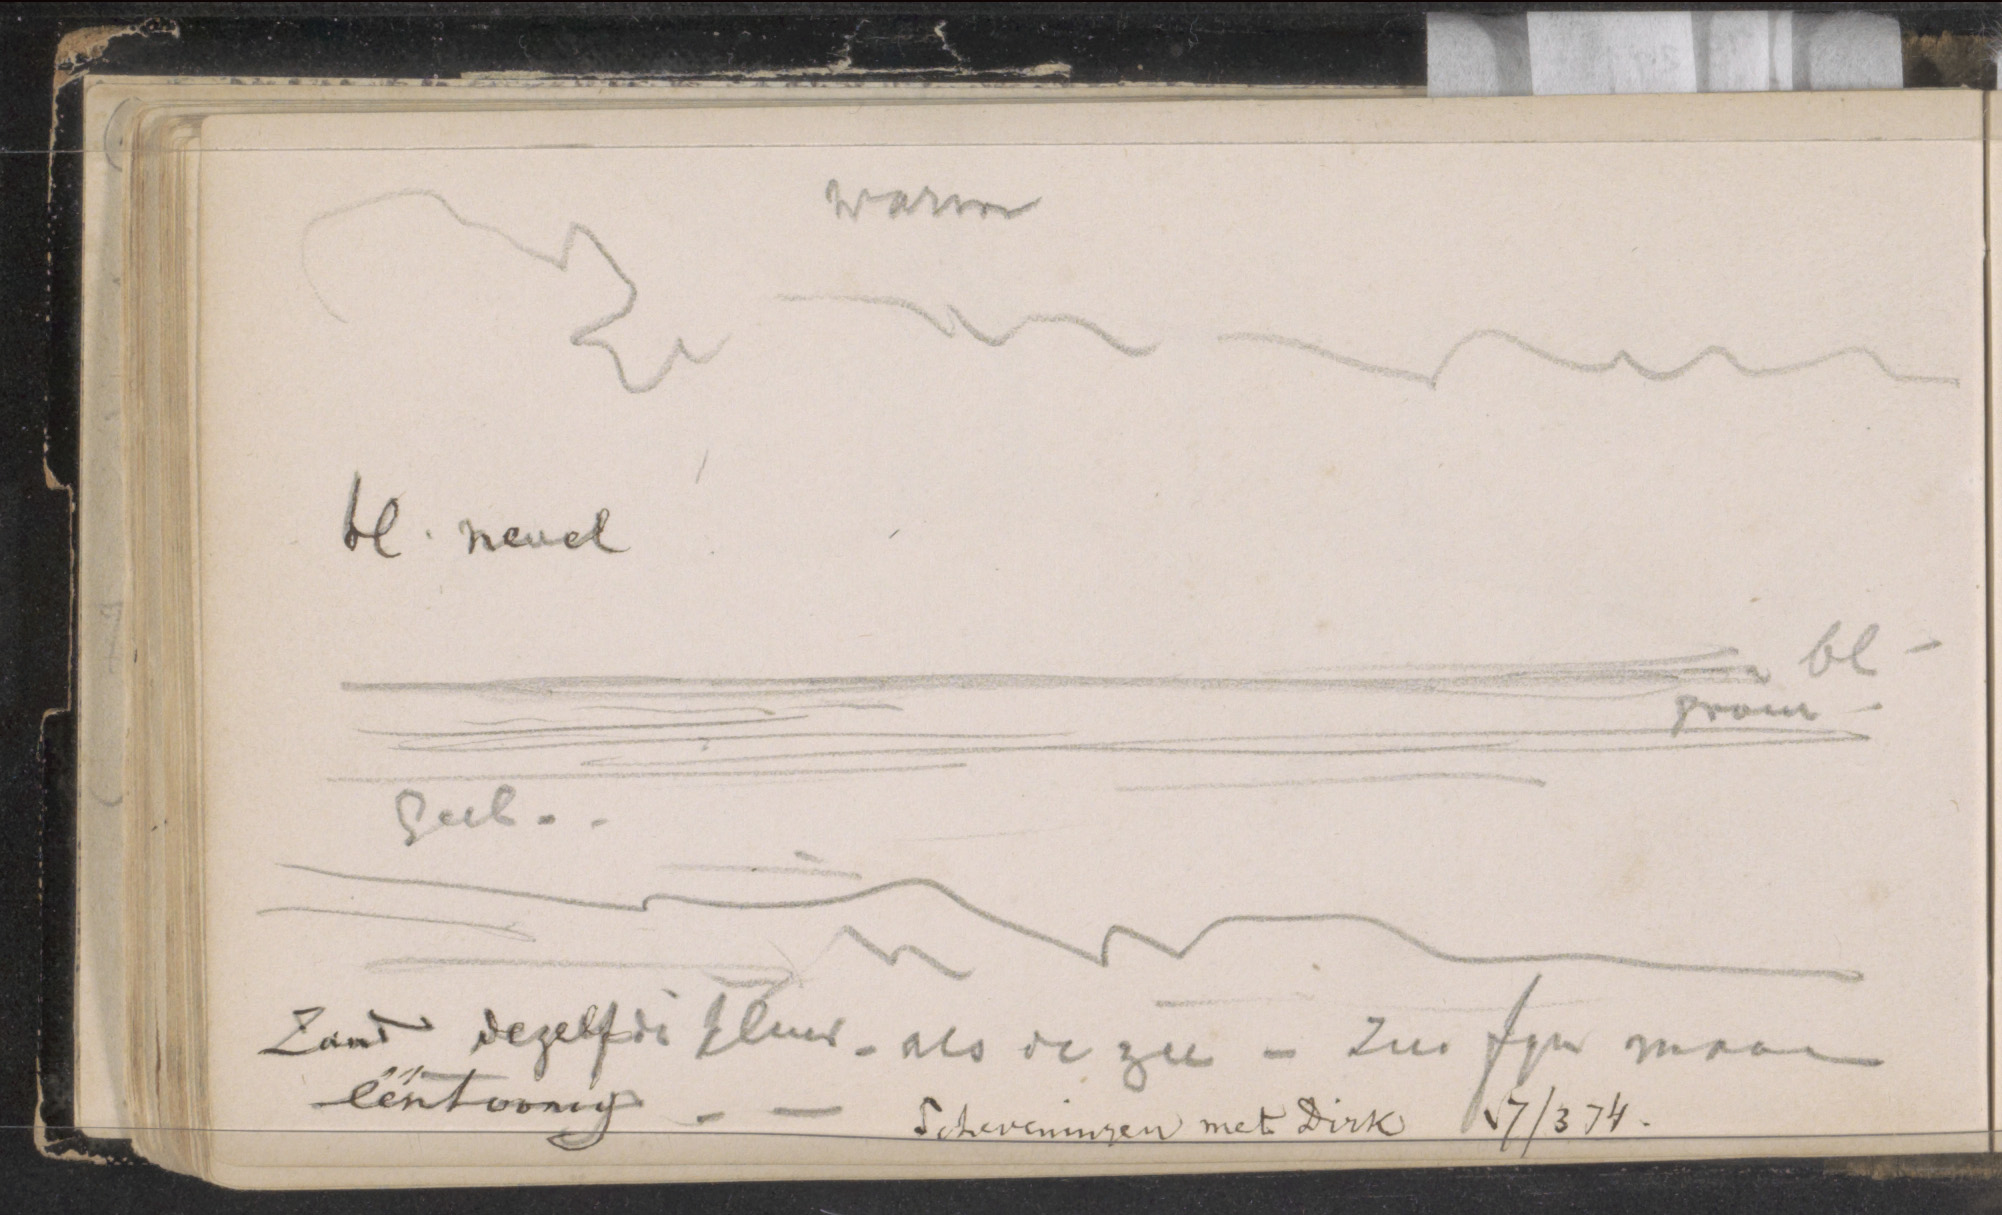 warm
bl. nevel
bl -
groen -
Geel. -
Zand dezelfde kleur - als de zee - zee fijn maar
ééntoonig - -
Scheveningen met Dirk 17/3 74.